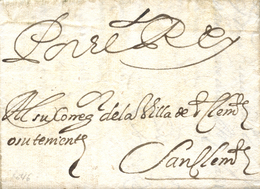 Por el Rey
Al su Correg de la Villa de S Clem^te
o su teniente
San Clem^te